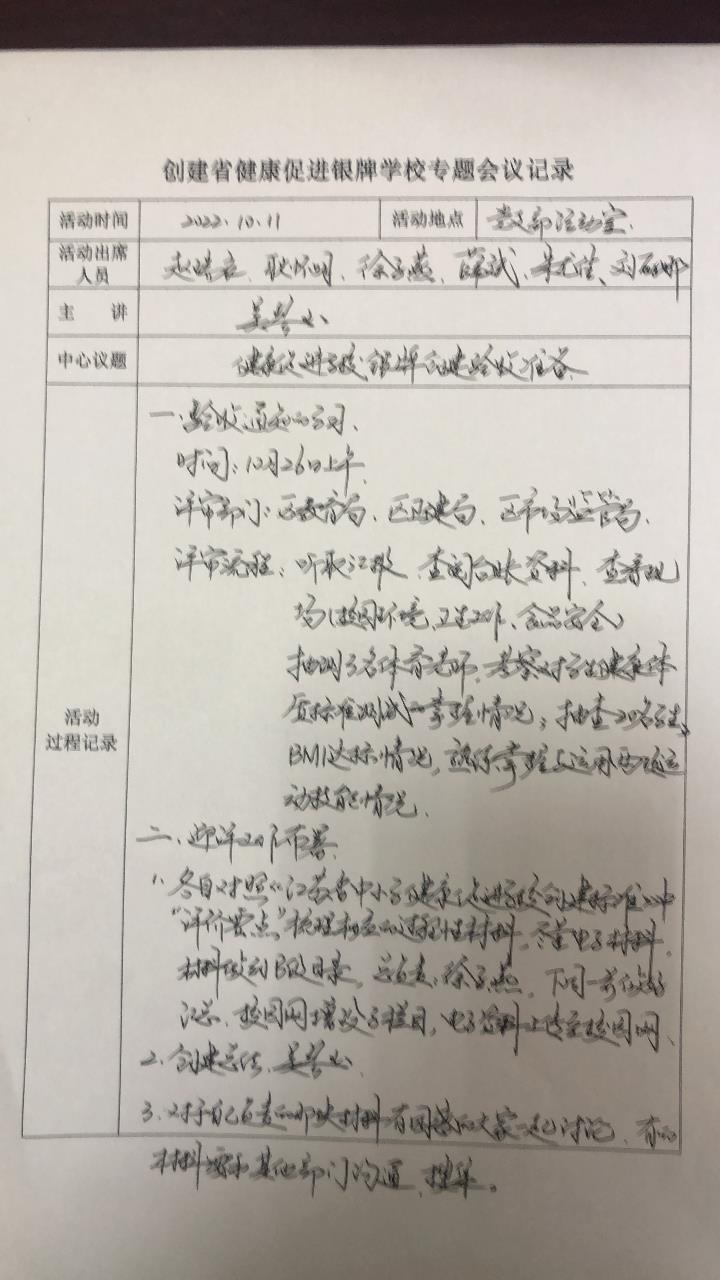 创建省健康促进银牌学校专题会议记录
活动时间 2022.10.11 活动地点 党支部活动室.
活动出席人员 耿怀明、徐子燕、薛斌、刘
主 讲
中心议题 健康促进学校银牌创建验收准备
活动过程记录
一、验收通知
时间:12月26日上午.
评审部门:区教育局、区卫健局、区市场监管局.
评审流程:听取汇报、查阅台账资料、查看现
场(校园环境、卫生工作、食品安全)
抽测3名体育老师,考察对学生健康体
质标准测试掌握情况;抽查20名学生
BMI达标情况,熟练掌握与运用两项运
动技能情况.
二、迎评工作布署
1. 各自对照《江苏省中小学健康促进学校创建标准》中
“评价要点”梳理相应的过程性材料,尽量电子材料,
材料做到B级目录,总负责:徐子燕,下周前做好
汇总,校园网增设子栏目,电子资料上传至校园网.
2. 创建总结,
3. 对于自己负责的那块材料有困惑的大家一起讨论,有的
材料要和其他部门沟通、搜集。